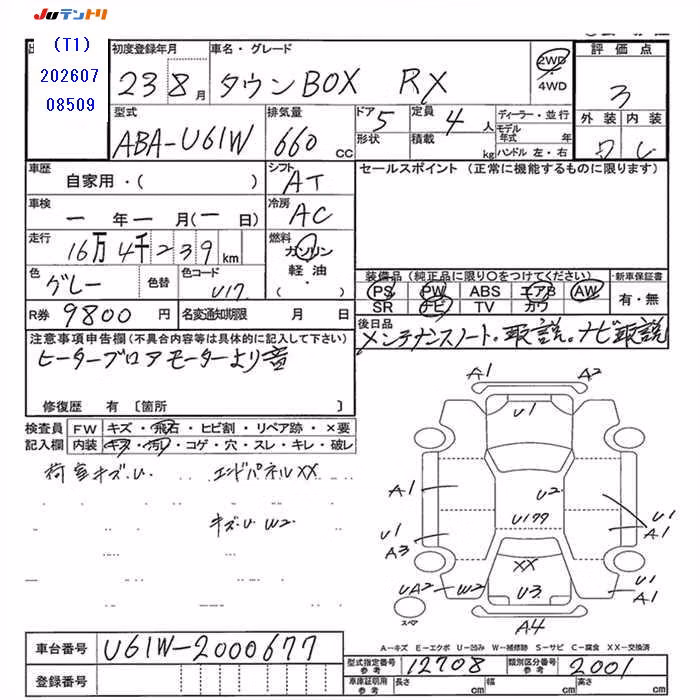 JUテントリ
(T1)
202607
08509
初度登録年月
23 8月
車名・グレード
タウンBOX RX
2WD
4WD
評価点
3
外装 内装
型式
ABA-U61W
排気量
660 cc
ドア 5
形状
定員 4人
積載 kg
ディーラー・並行
モデル年式 年
ハンドル 左・右
車歴
自家用・( )
シフト
AT
セールスポイント (正常に機能するものに限ります)
車検
一年一月(一日)
冷房
AC
走行
16万4千239km
燃料
ガソリン
軽油
( )
色
グレー
色替
色コード
U17
装備品(純正品に限り○をつけてください)
PS PW ABS エアB AW
SR ナビ TV カワ
・新車保証書
有・無
R券
9800円
名変通知期限 月 日
後日品
メンテナンスノート。取説。ナビ取説
注意事項申告欄(不具合内容等は具体的に記入して下さい)
ヒーターブロアモーターより音
修復歴 有〔箇所 〕
検査員
記入欄
FW キズ・飛石・ヒビ割・リペア跡・×要
内装 キズ・汚レ・コゲ・穴・スレ・キレ・破レ
荷室キズ.U
エンドパネルXX
キズ.U W2
A1
A2
U1
A1
U2
U177
U1
A1
U1
A3
XX
U3
UA2
W2
U1
A1
A4
スペア
A-キズ E-エクボ U-凹み W-補修跡 S-サビ C-腐食 XX-交換済
車台番号
U61W-2000677
登録番号
型式指定番号
参考
12708
類別区分番号
参考
2001
車庫証明用
参考
長さ cm
幅 cm
高さ cm